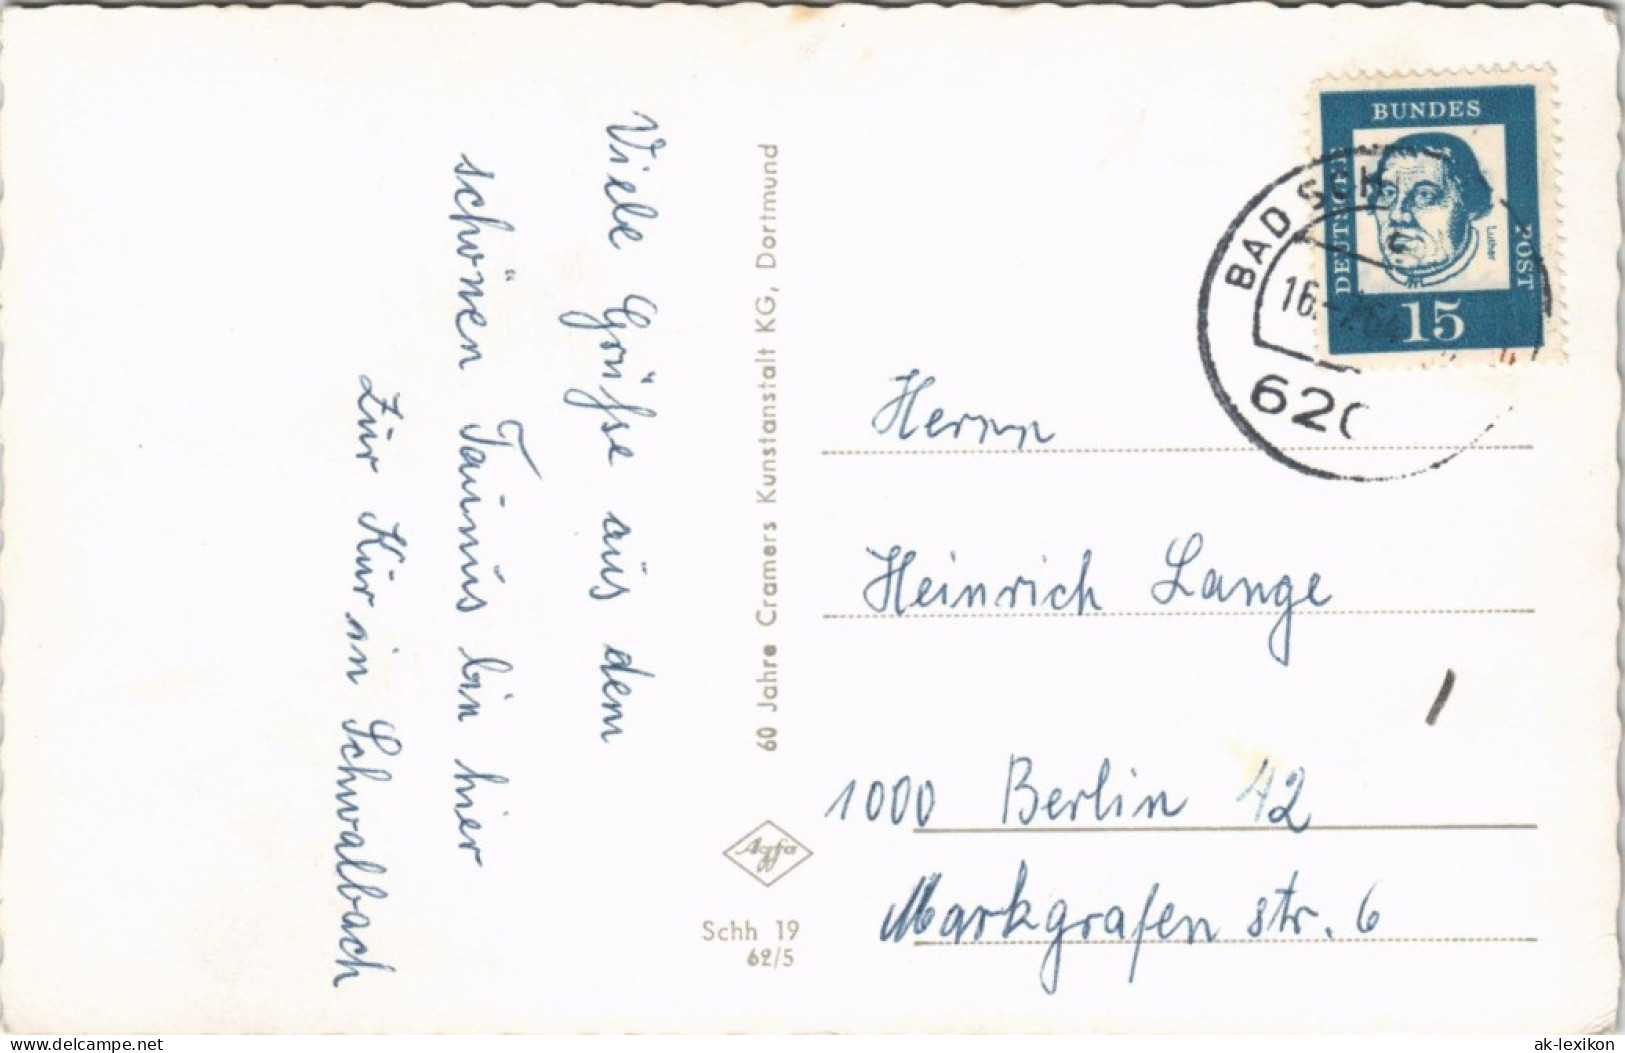 Viele Grüsse aus dem
schönen Taunus bin hier
zur Kur in Schwalbach
60 Jahre Cramers Kunstanstalt KG, Dortmund
Agfa
Schh 19
62/5
DEUTSCHE
BUNDES
POST
Luther
15
BAD SCH
16.-7.64
620
Herrn
Heinrich Lange
1000 Berlin 42
Markgrafen str. 6
delcampe.net
ak-lexikon